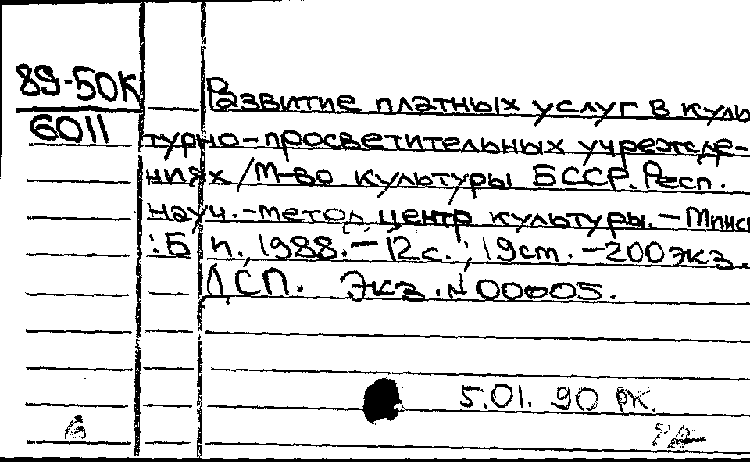 89-50К
6011
Развитие платных услуг в куль
турно-просветительных учрежде-
ниях/М-во культуры БССР. Респ.
науч.-метод. центр культуры.-Минск
:Б и., 1988.-12с.; 19cm.-200экз.
ДСП. Экз.N00005.
5.01.90 РК.